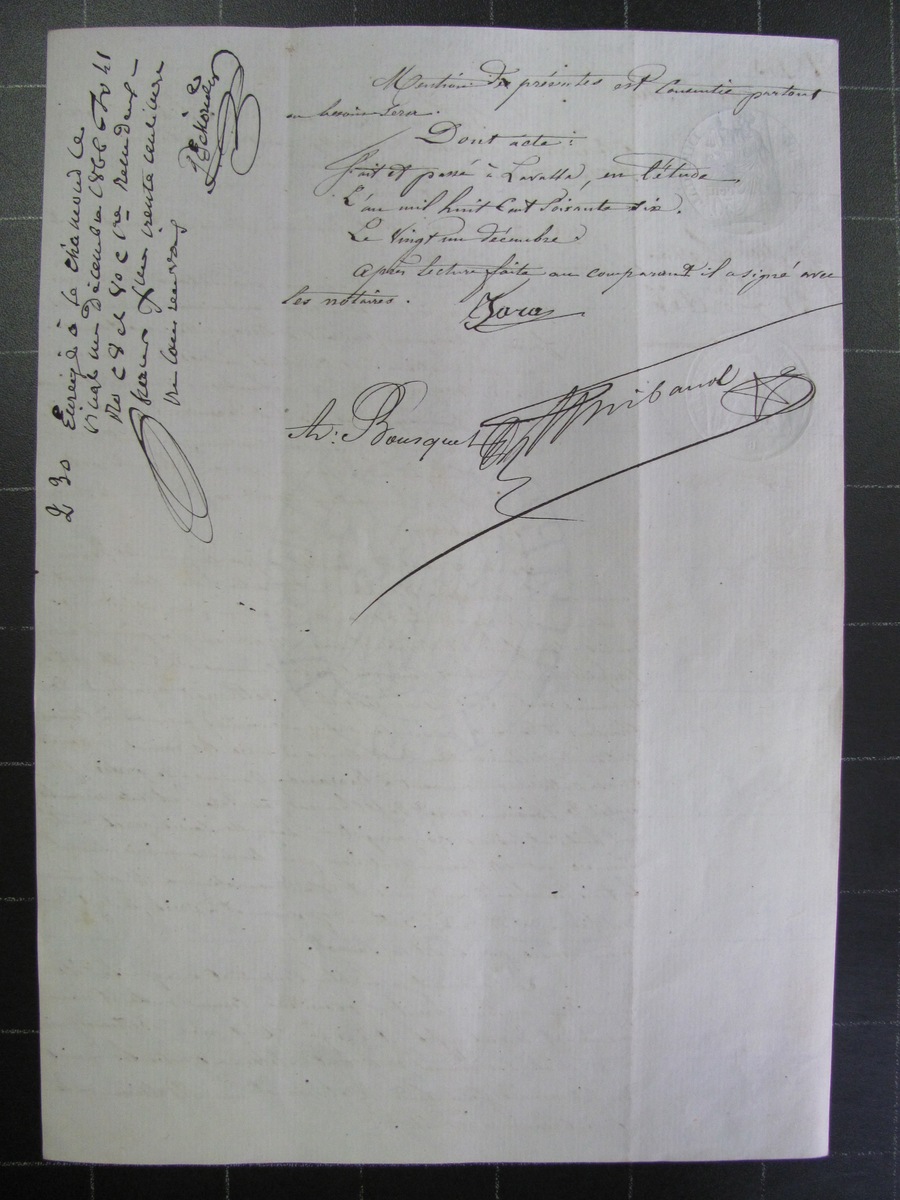 Mention des présentes est consentie partout
où besoin sera.
Dont acte :
Fait et passé à Lavalla, en l'étude,
L'an mil huit cent soixante six.
Le vingt un décembre.
Après lecture faite au comparant il a signé avec
les notaires.
Jara
th: Bousquet
Thibaud
Enregé à St Chamond le
vingt un Décembre 1866 Fo 41
Ro C 8 et 90 c
deux francs trente centimes
2 30